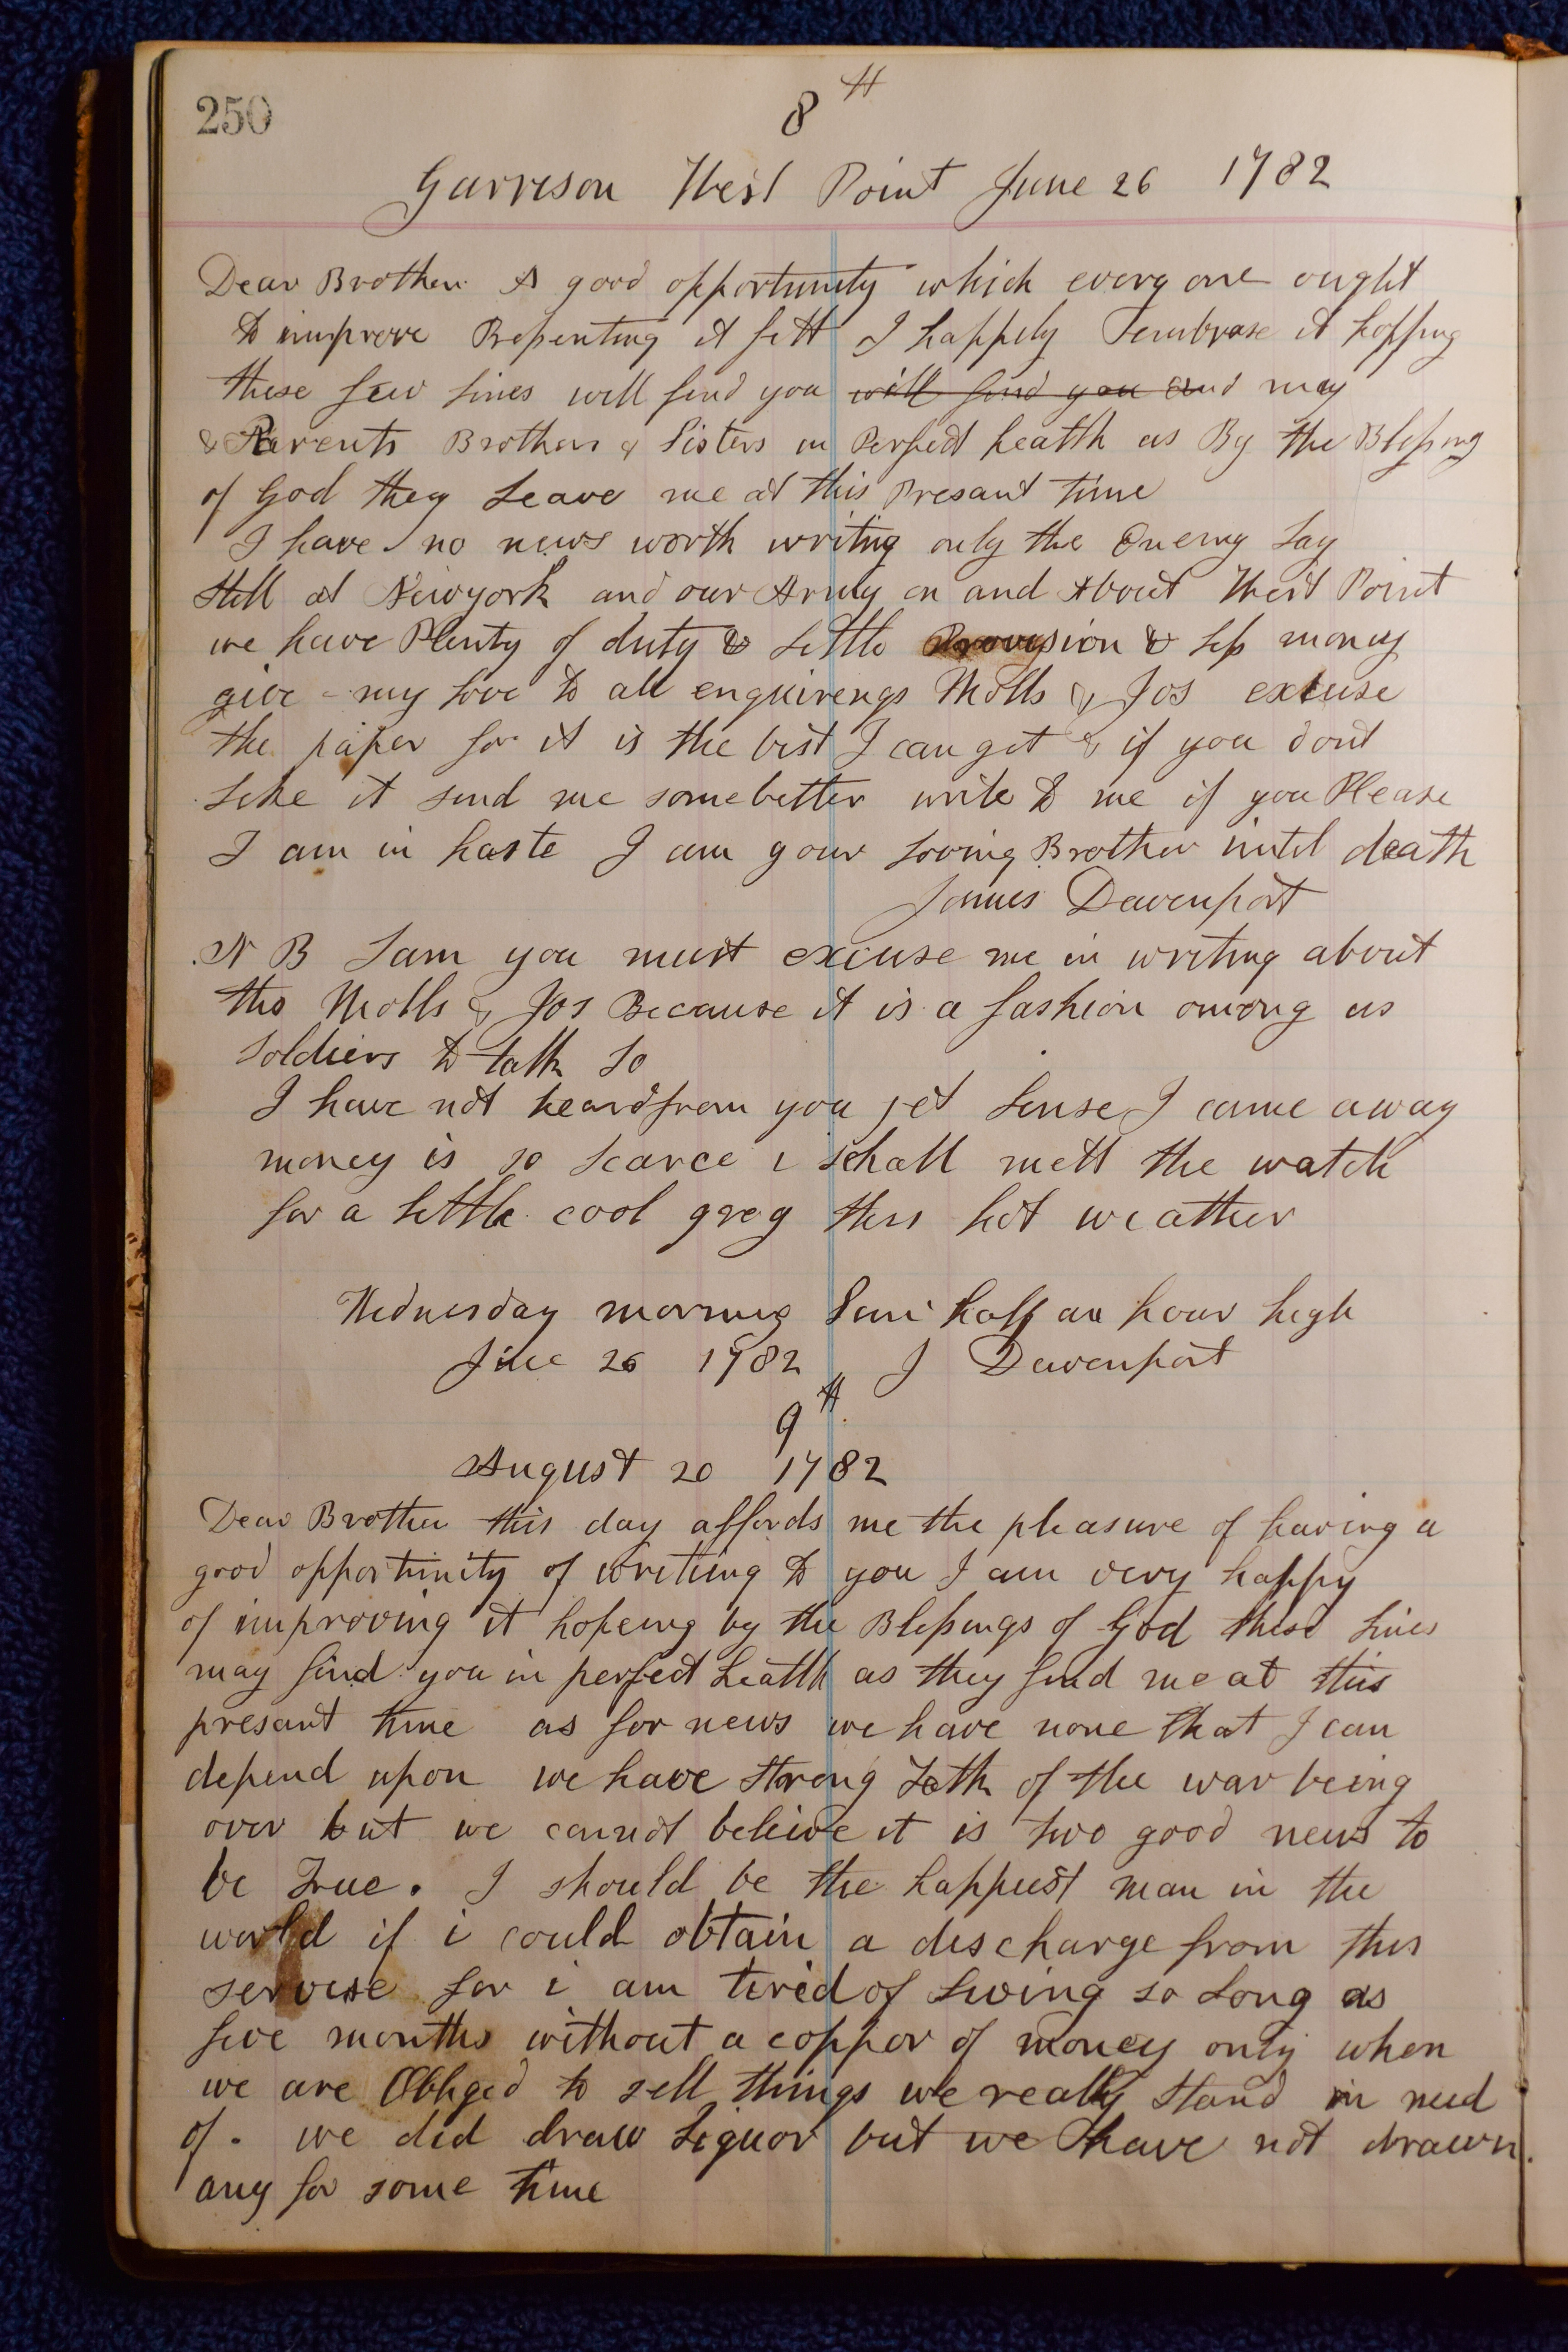 250
8th
Garrison West Point June 26 1782
Dear Brother A good opportunity which every one ought
to improve Presenting it self I happely Iembrase it hopping
these few Lines will find you will find you and may
& Parents Brothers & Sisters in Perfect health as By the Blessing
of God they Leave me at this Presant time
I have no news worth writing only the Enemy Lay
still at Newyork and our Army on and About West Point
we have Plenty of duty & Little Provision & Less money
give my Love to all enquirengs Molls & Jos excuse
the paper for it is the best I can get & if you dont
Like it send me some better write to me if you Please
I am in haste I am your Loving Brother until death
James Davenport
N B Sam you must excuse me in writing about
the Molls & Jos Because it is a fashion among us
Soldiers to talk so
I have not heard from you yet Sense I came away
money is so scarce i schall mell the watch
for a little cool grog this hot weather
Wednesday morning Sun half an hour high
June 26 1782 J Davenport
9th
August 20 1782
Dear Brother this day affords me the pleasure of having a
good opportinity of writing to you I am very happy
of improving it hopeing by the Blessings of God these Lines
may find you in perfect health as they find me at this
presant time as for news we have none that I can
depend upon we have strong Talk of the war being
over but we cannot beleive it is two good news to
be True. I should be the happiest man in the
world if i could obtain a discharge from this
servise for i am tired of Living so Long as
five months without a copper of money only when
we are Obliged to sell things we really stand in need
of. we did draw Liquor but we have not drawn
any for some time